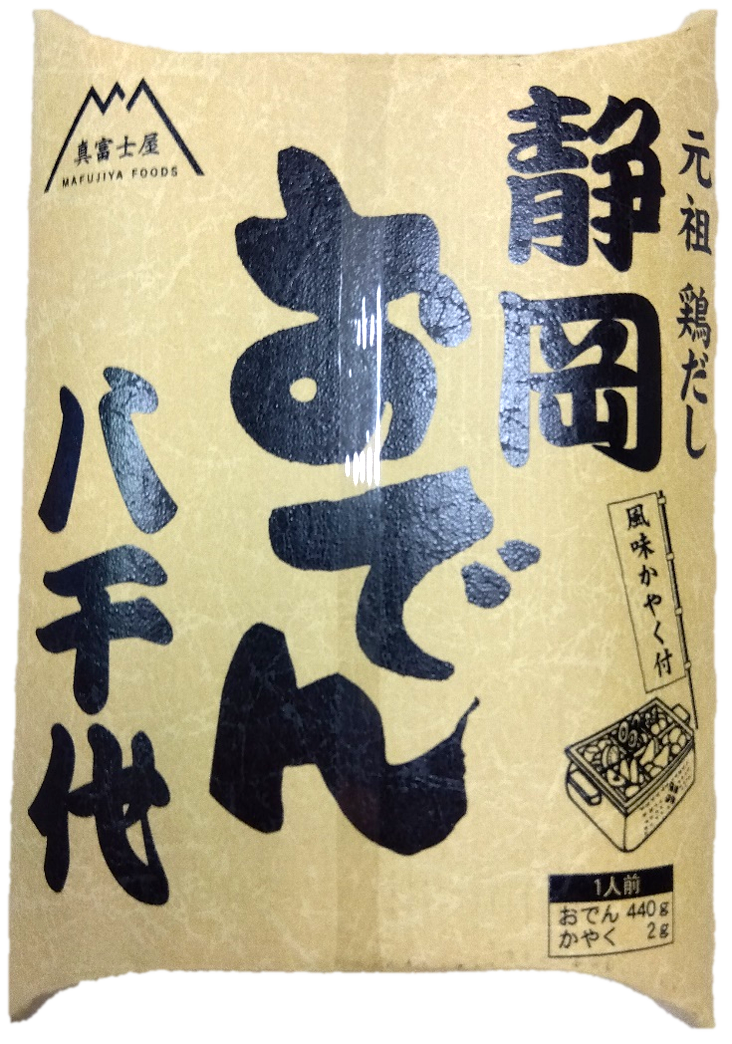 元祖 鶏だし
静岡
おでん
八千代
真富士屋
MAFUJIYA FOODS
風味かやく付
1人前
おでん 440g
かやく 2g